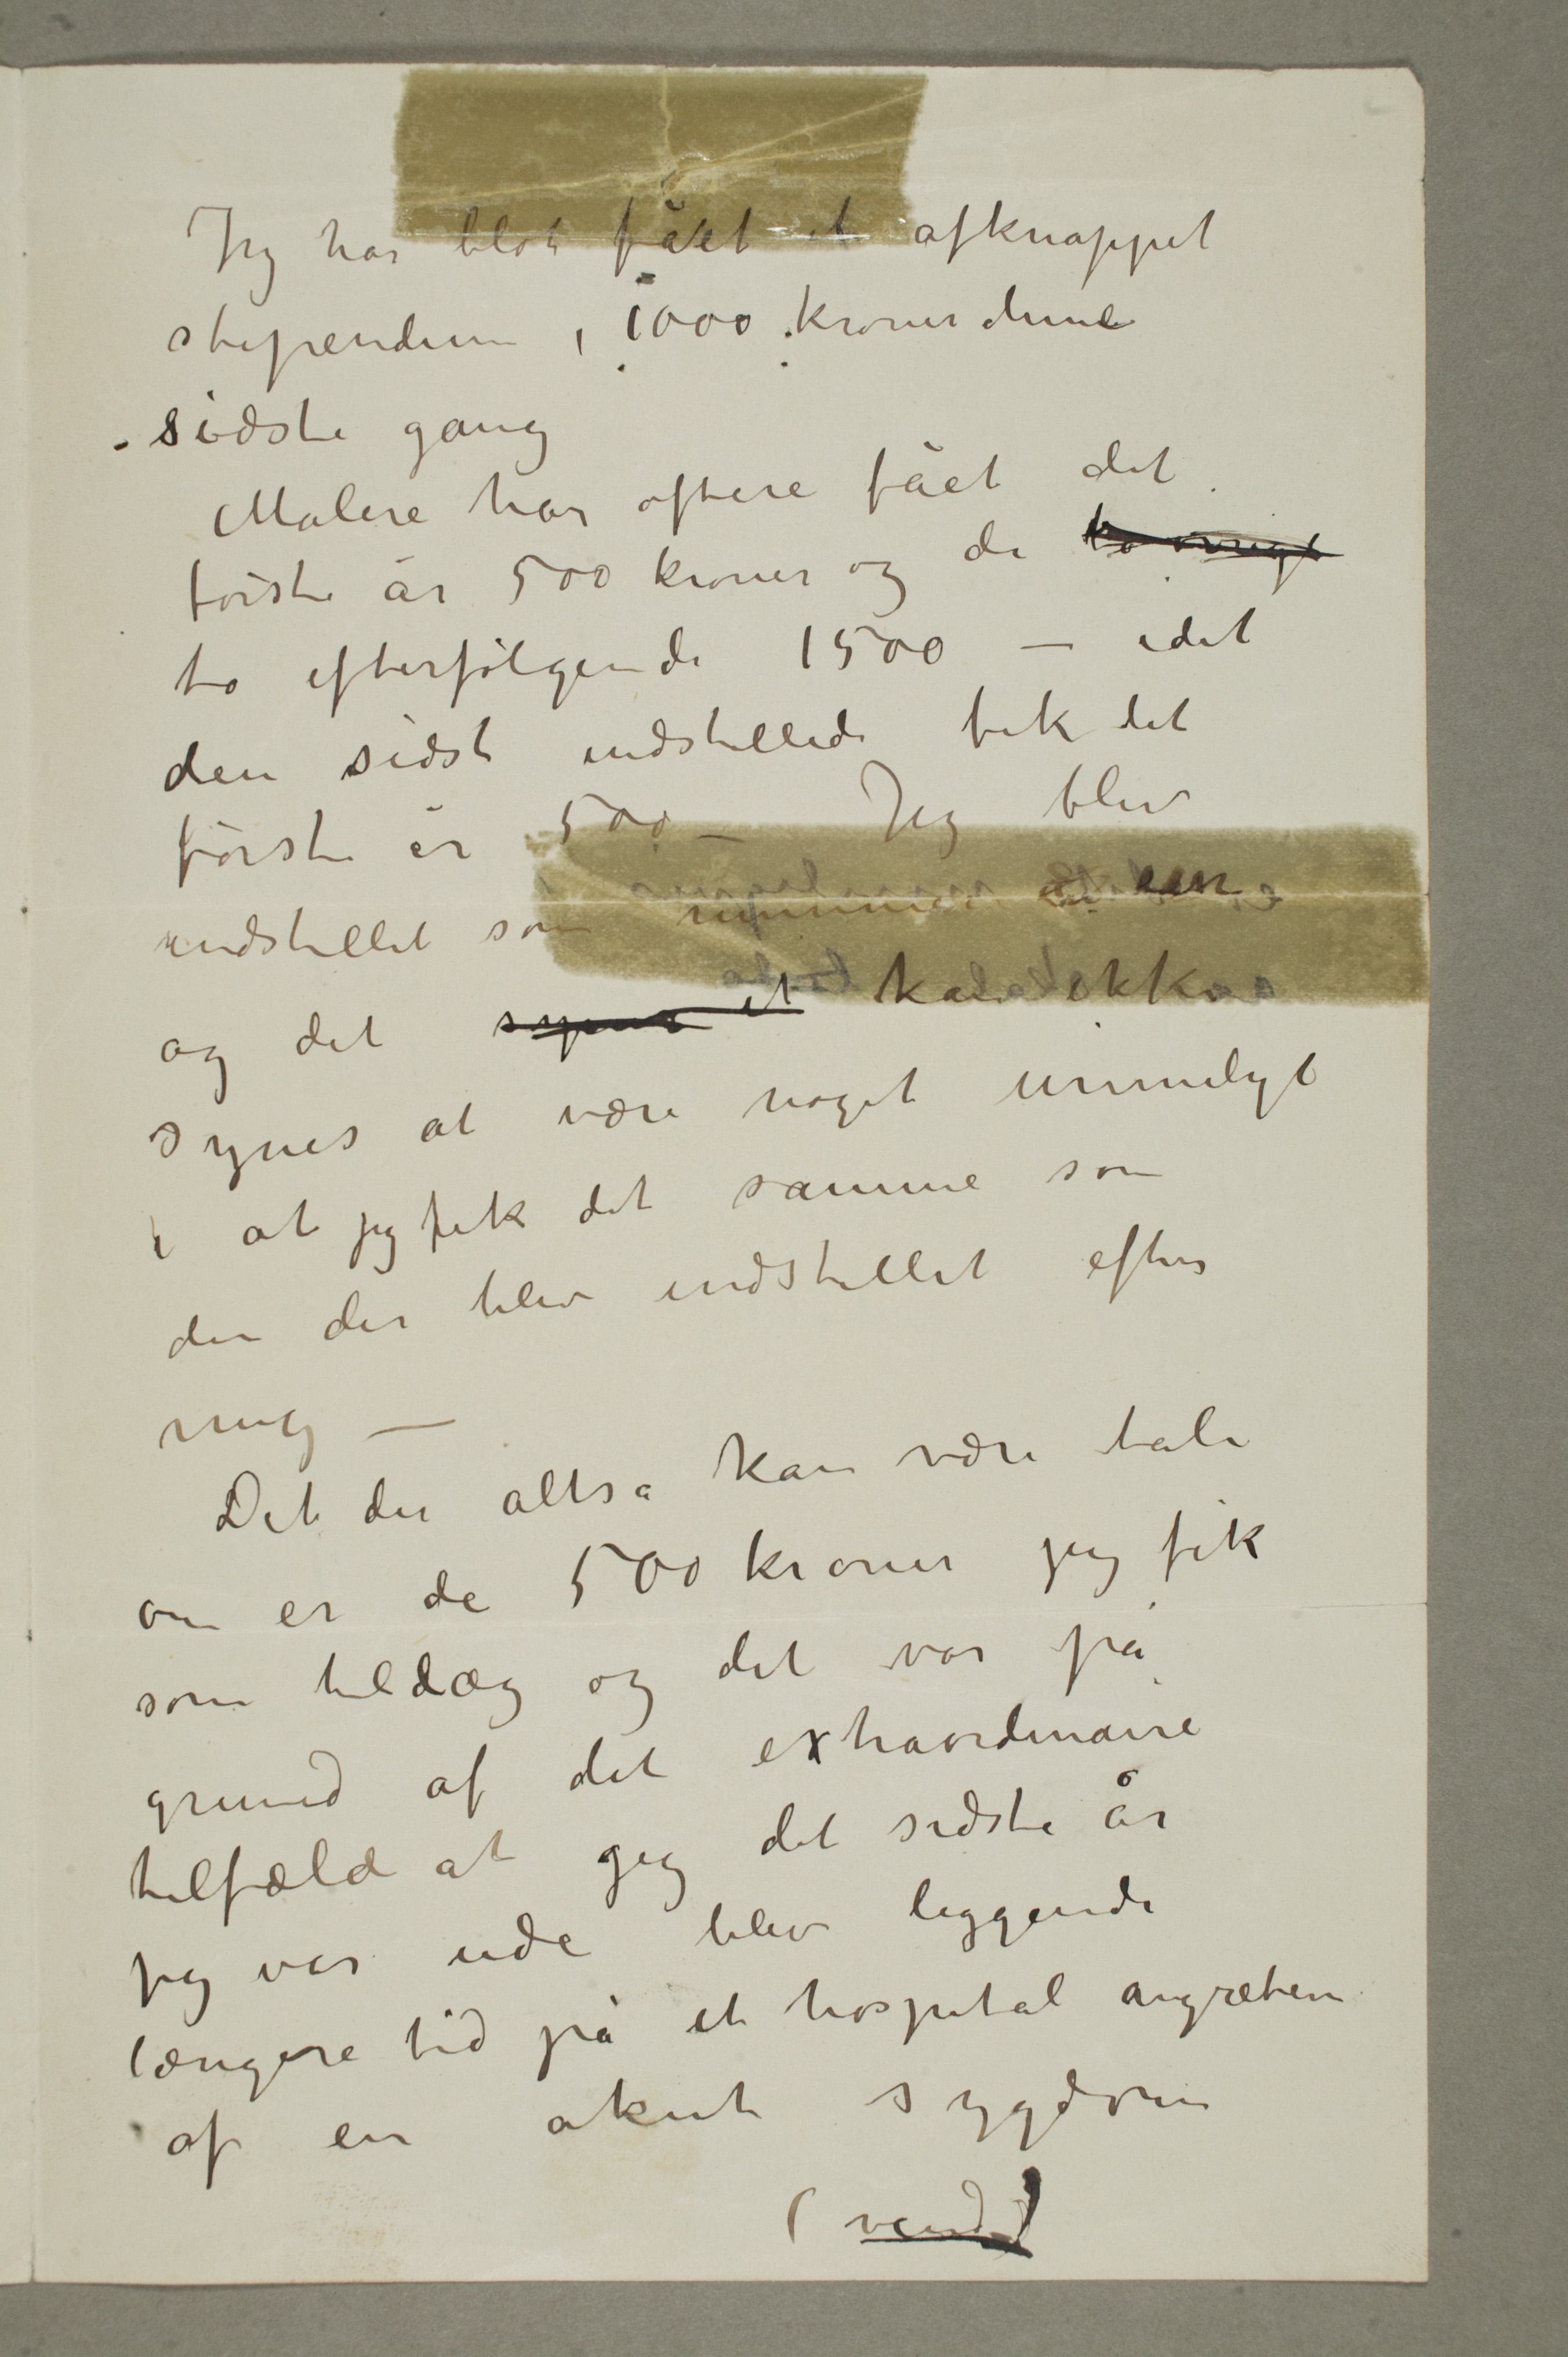 Jeg har blot fået et afknappet
stipendium, 1000 kroner denne
sidste gang
Malere har oftere fået det
første år 500 kroner og de to øvrige
to efterfølgende 1500 – idet
den sidst indstillede fik det
første år 500 – Jeg blev
indstillet som nummer en
og det synes et kan ikke
synes at være noget urimeligt
i at jeg fik det samme som
den der blev indstillet efter
mig –
Det der altsa kan være tale
om er de 500 kroner jeg fik
som tillæg og det var på
grund af det extraordinaire
tilfælde at jeg det sidste år
jeg var ude blev liggende
længere tid på et hospital angreben
af en akut sygdom
(vend)